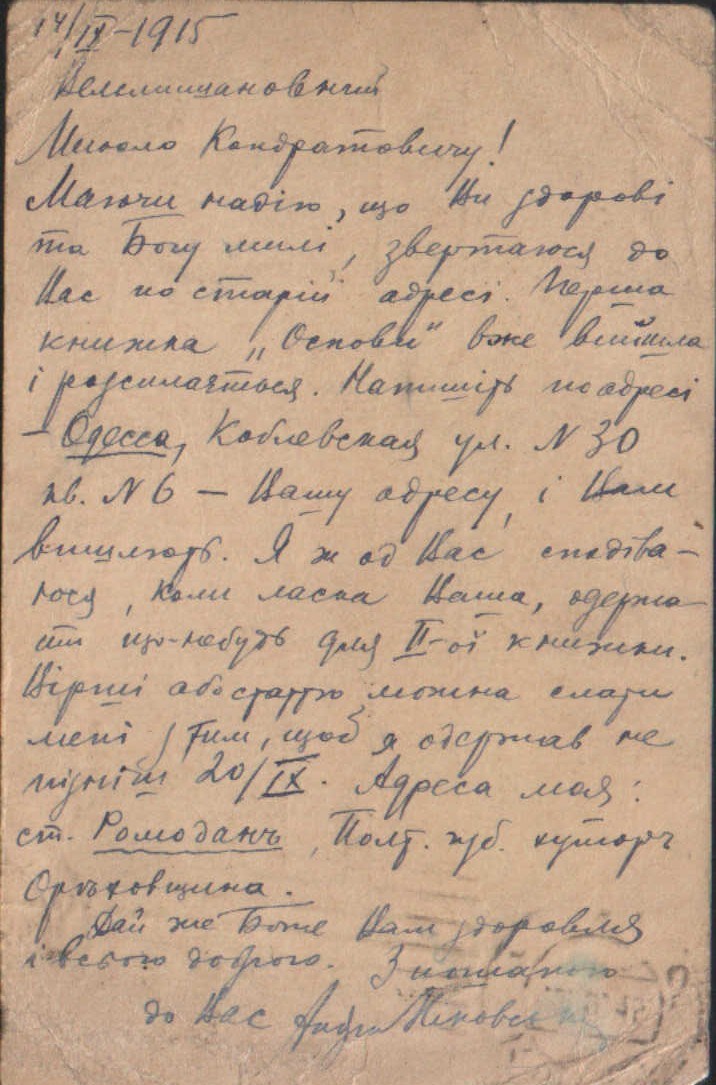 14/IX-1915
Вельмишановний
Миколо Кондратовичу!
Маючи надію, що Ви здорові
та Богу милі, звертаюся до
Вас по старій адресі. Перша
книжка „Основи" вже вийшла
і розсилається. Напишіть по адресі
– Одесса, Коблевская ул. N 30
кв. N 6 — Вашу адресу, і Вам
вишлють. Я ж од Вас сподіва-
юся, коли ласка Ваша, одержа-
ти що-небудь для II-ої книжки.
Вірші або статтю можна слати
мені з тим, щоб я одержав не
пізніш 20/IX. Адреса моя:
ст. Ромоданъ, Полт. губ. хуторъ
Орѣховщина.
Дай же Боже Вам здоровля
і всього доброго. З пошаною
до Вас Андрій Ніковський